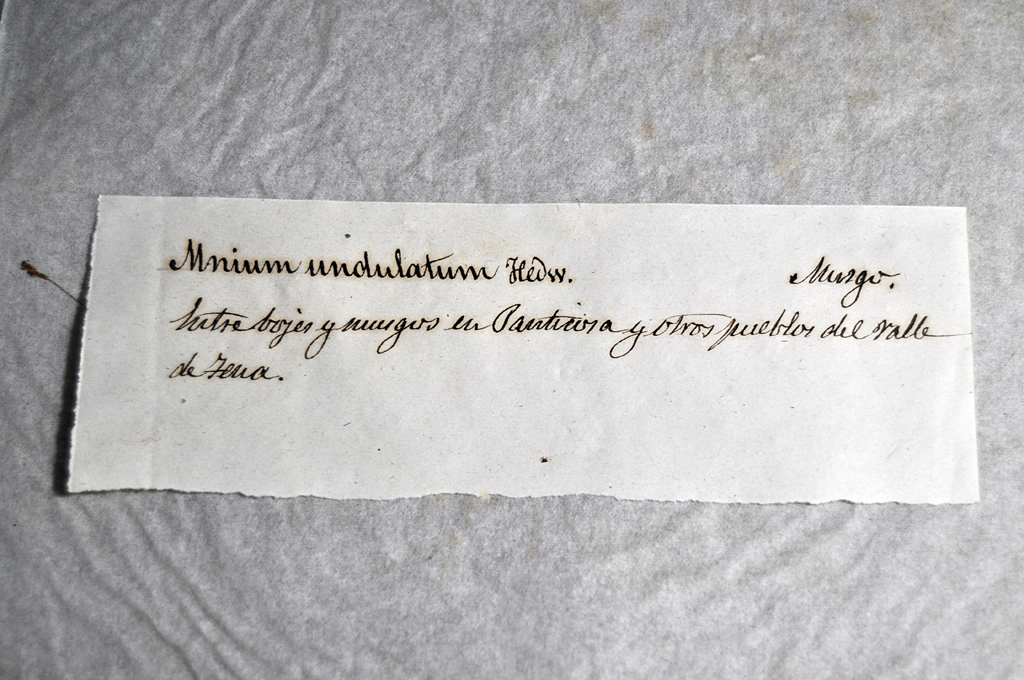 Mnium undulatum Hedw. Musgo.
Entre bojes y musgos en Panticosa y otros pueblos del valle
de Tena.